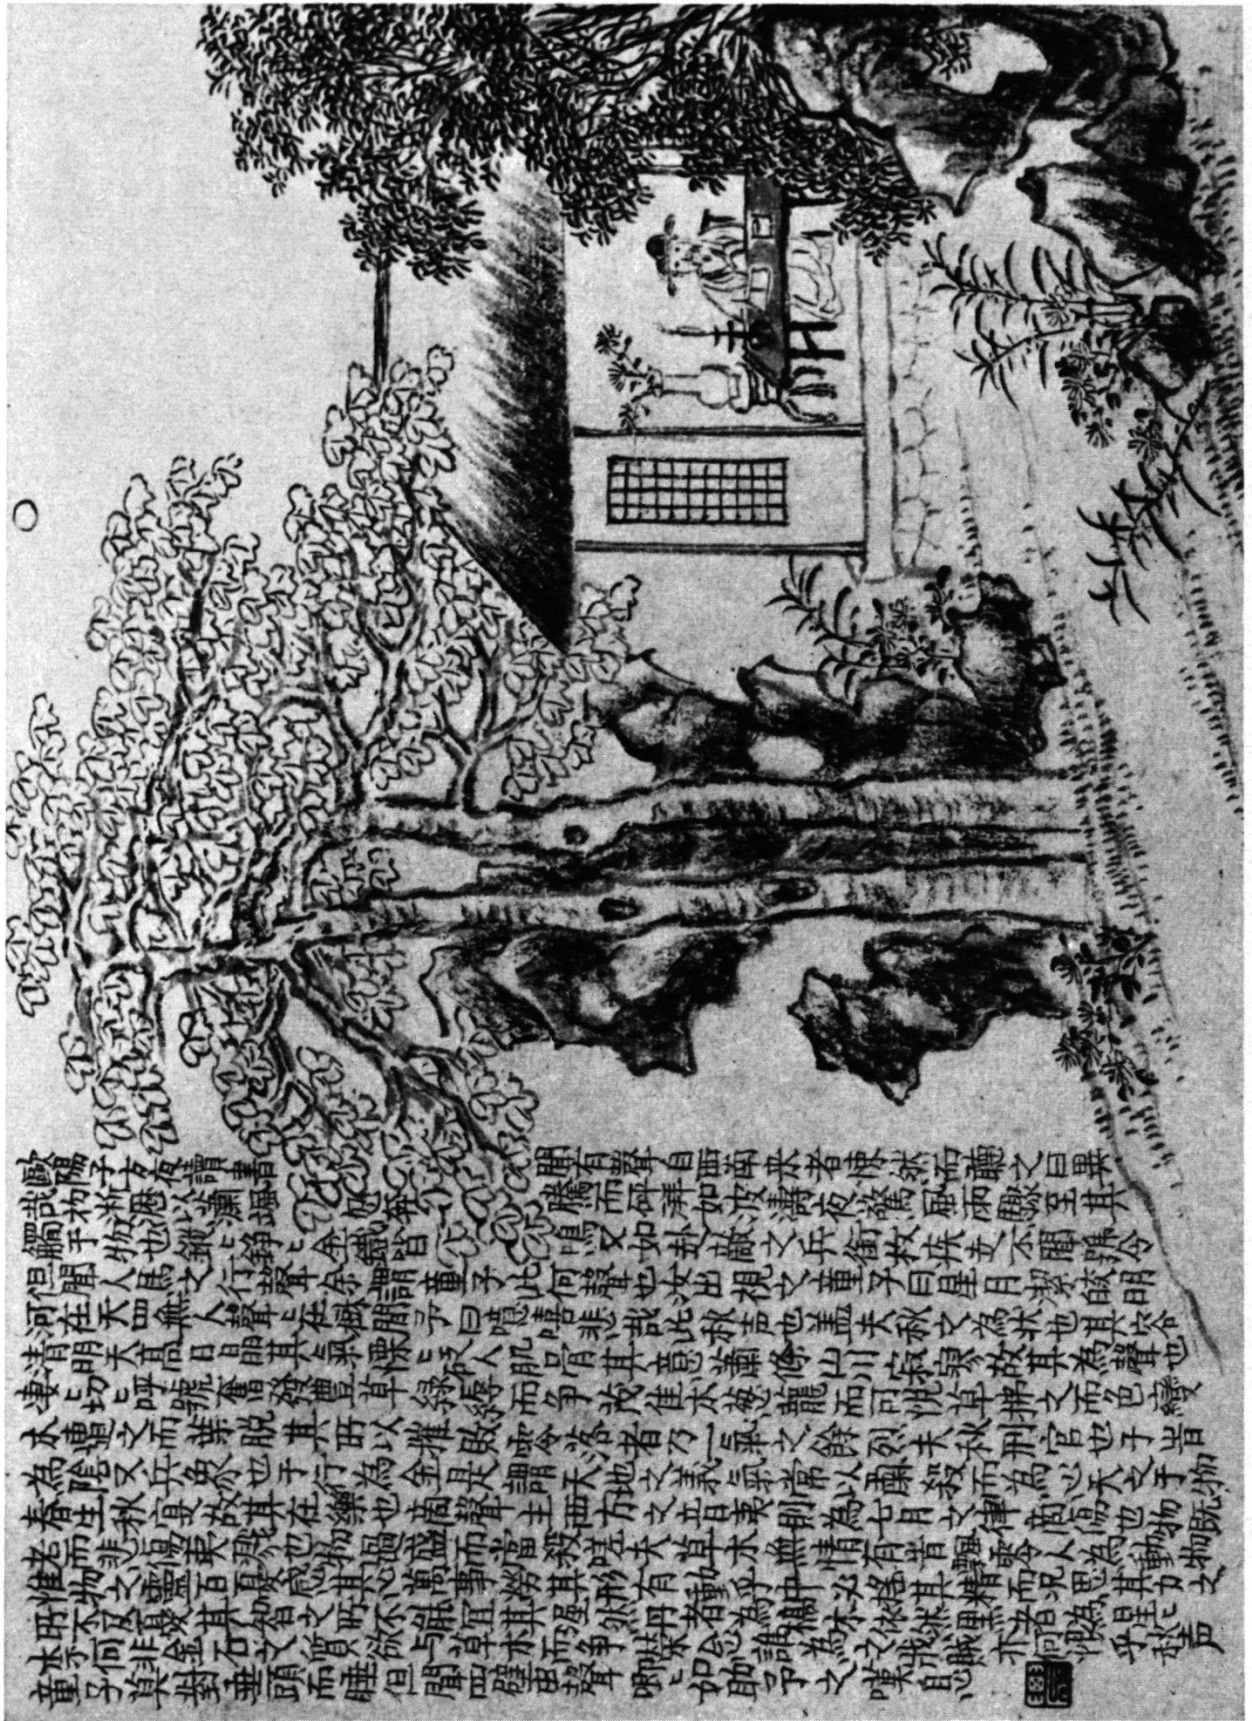 歐陽子方夜讀書聞有聲自西南来者悚然而聽之曰異
哉初淅瀝以瀟颯忽奔騰而砰湃如波濤夜驚風雨驟至其
觸于物也鏦鏦錚錚金鐵皆鳴又如赴敵之兵銜枚疾走不聞號令
但聞人馬之行聲余謂童子此何聲也汝出視之童子曰星月皎潔明
河在天四無人聲聲在樹間予曰噫嘻悲哉此秋声也蓋夫秋之為狀也其容
清明天高日晶其氣慄冽砭人肌骨其意蕭條山川寂寥故其為聲也
淒淒切切呼號奮發豐草綠縟而爭茂佳木葱蘢而可悅草拂之而色變
木遭之而葉脫其所以摧敗零落者乃一氣之餘烈夫秋刑官也于時
為陰又兵象也于行為金是謂天地之義氣常以肅殺而為心天之于物
春生秋實故其在樂也商聲主西方之音夷則為七月之律商傷也物既
老而悲傷夷戮也物過盛而當殺嗟夫草木無情有時飄零人為動物
惟物之靈百憂感其心萬事勞其形有動乎中必搖其精而況思其力之
所不及憂其智之所不能宜其渥然丹者為槁木黟然黑者為星星
奈何非金石之質欲與草木而爭榮念誰為之戕賊亦何恨乎秋声
童子莫對垂頭而睡但聞四壁虫聲唧唧如助予之嘆息